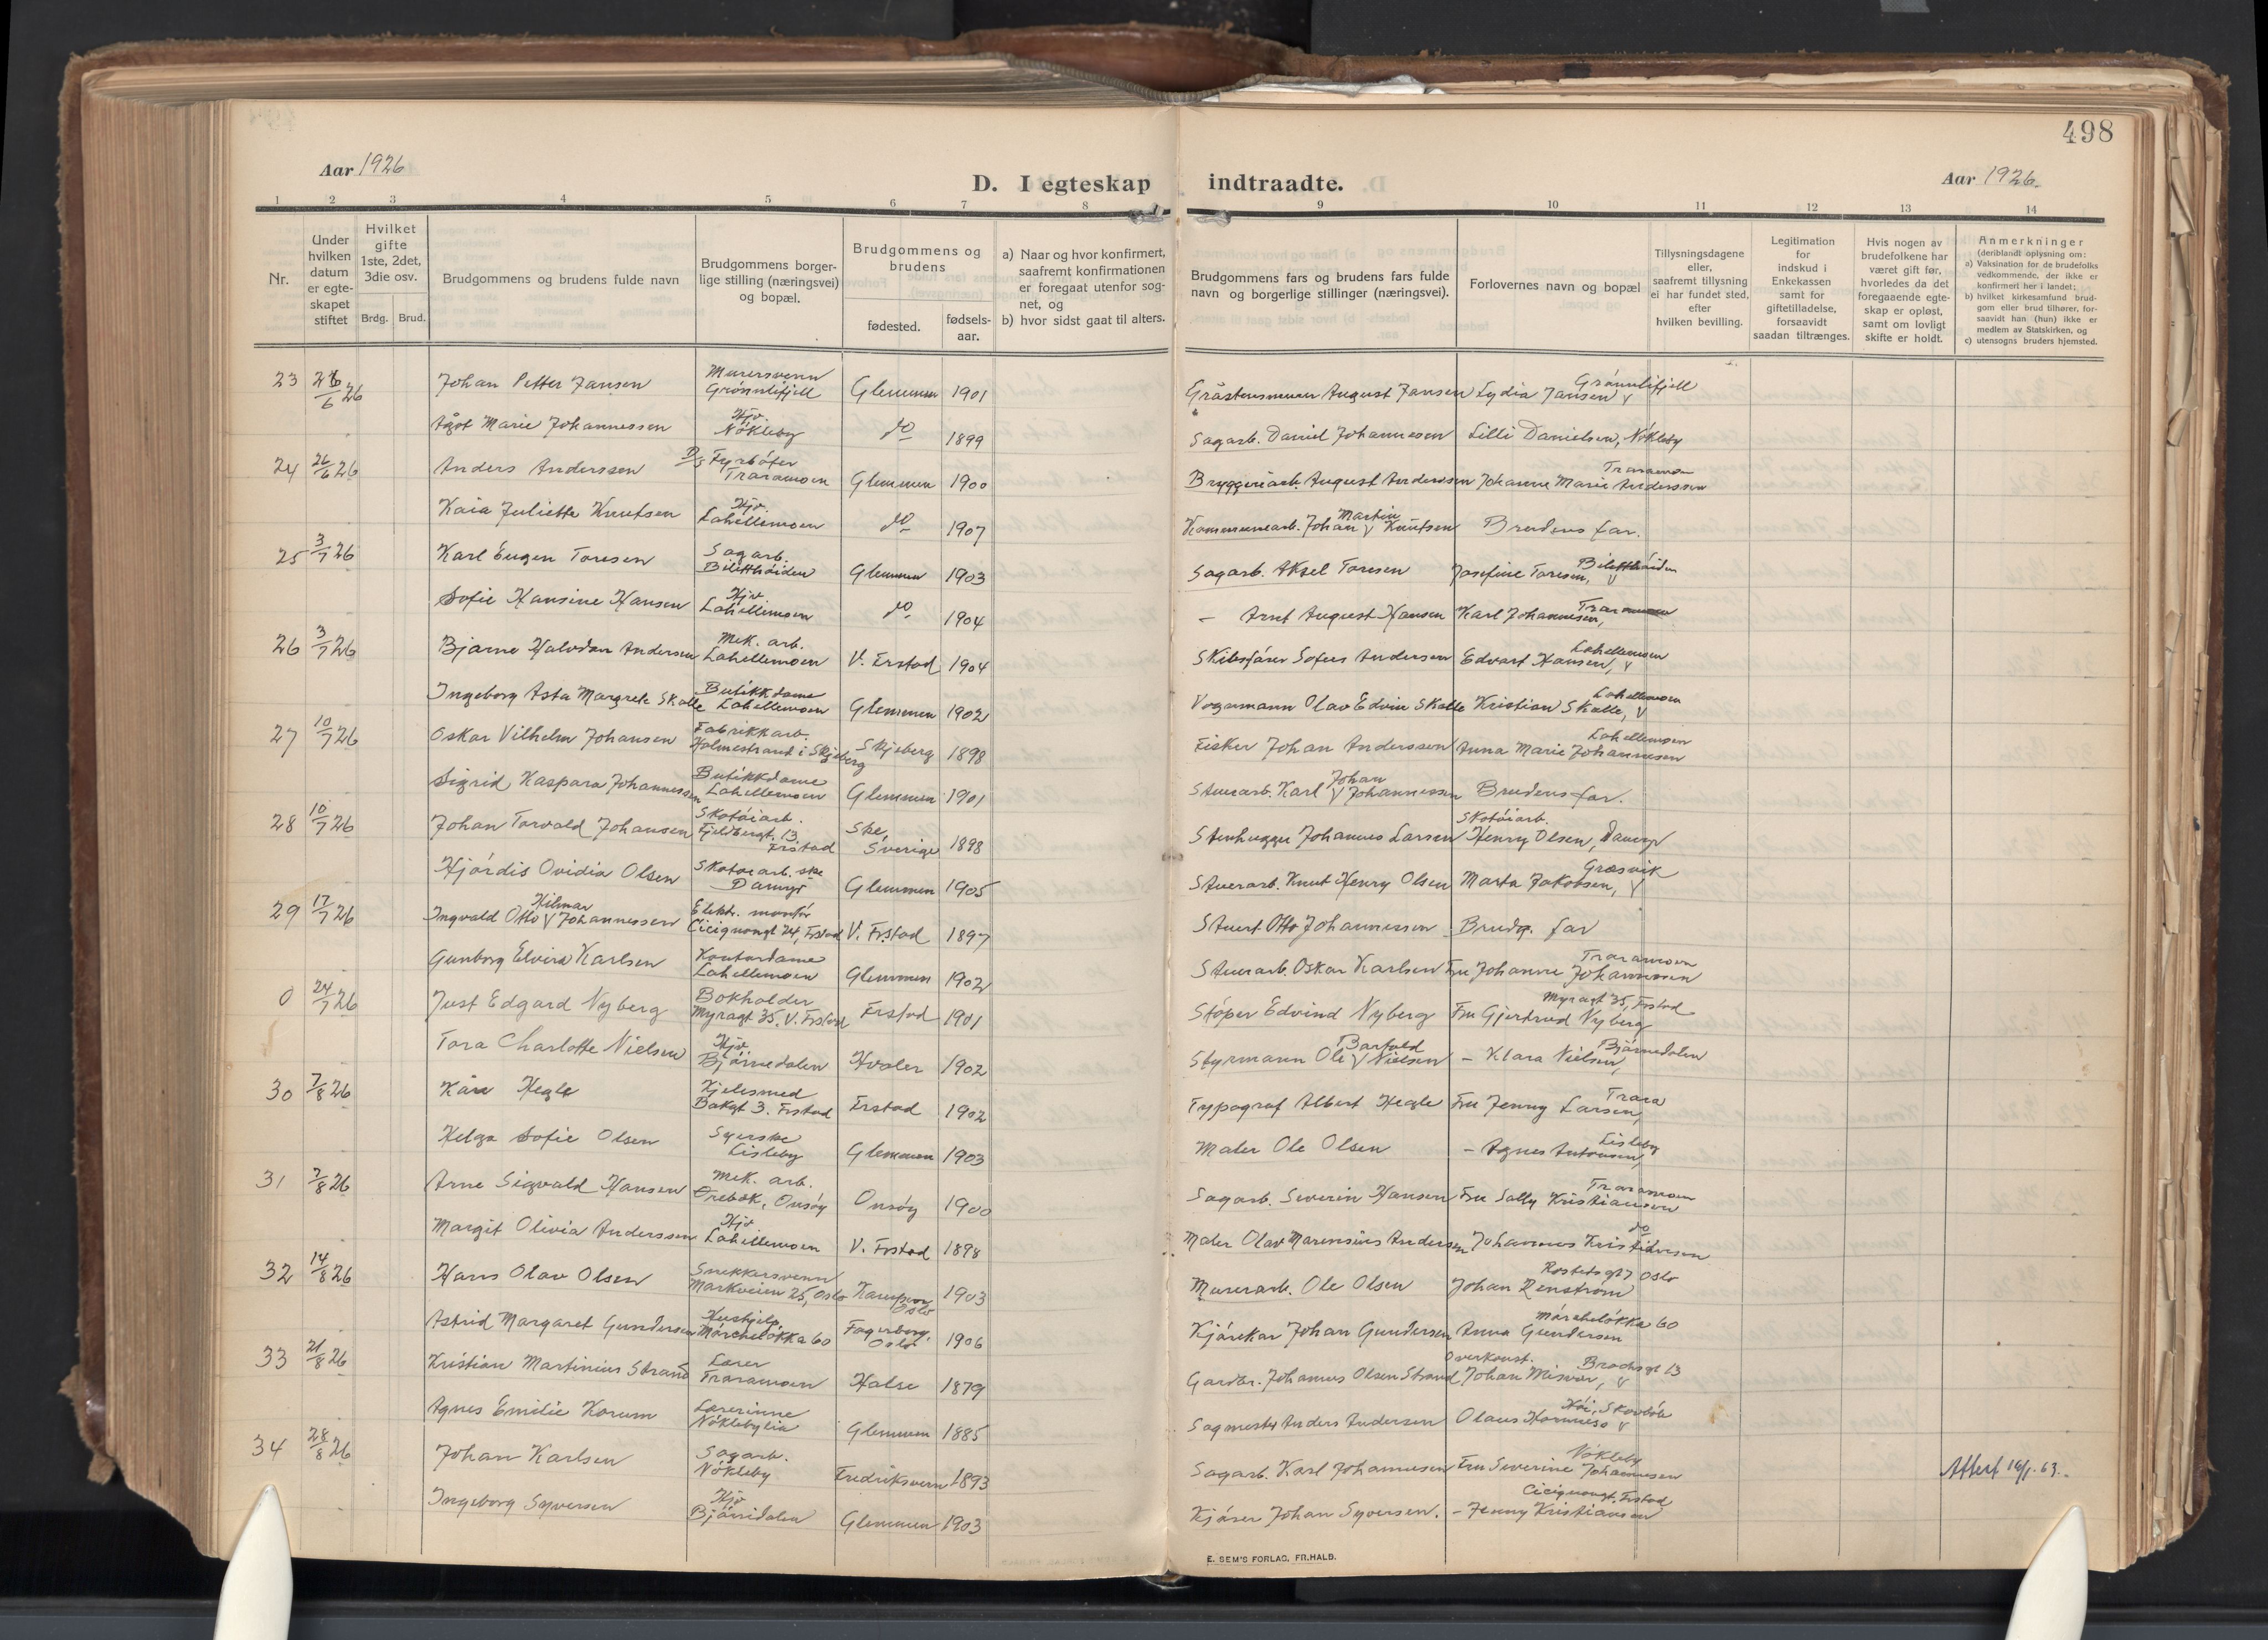 498
Aar 1926
D. I egteskap indtraadte.
Aar 1926.
1 2 3 4 5 6 7 8 9 10 11 12 13 14
Nr.
Under hvilken datum er egte-skapet stiftet
Hvilket gifte 1ste, 2det, 3die osv.
Brdg. Brud.
Brudgommens og brudens fulde navn
Brudgommens borger-lige stilling (næringsvei) og bopæl.
Brudgommens og brudens
fødested.
fødsels-aar.
a) Naar og hvor konfirmert, saafremt konfirmationen er foregaat utenfor sog-net, og
b) hvor sidst gaat til alters.
Brudgommens fars og brudens fars fulde navn og borgerlige stillinger (næringsvei).
Forlovernes navn og bopæl
Tillysningsdagene eller, saafremt tillysning ei har fundet sted, efter hvilken bevilling.
Legitimation for indskud i Enkekassen samt for giftetilladelse, forsaavidt saadan tiltrænges.
Hvis nogen av brudefolkene har været gift før, hvorledes da det foregaaende egte-skap er opløst, samt om lovligt skifte er holdt.
Anmerkninger
(deriblandt oplysning om:
a) Vaksination for de brudefolks vedkommende, der ikke er konfirmert her i landet;
b) hvilket kirkesamfund brud-gom eller brud tilhører, for-saavidt han (hun) ikke er medlem av Statskirken, og
c) utensogns bruders hjemsted.
23 26/6 26 Johan Petter Jansen Murersvenn Grønnlifjell Glemmen 1901 Gråstensmurer August Jansen Lydia Jansen, Grønnlifjell
Ågot Marie Johannessen Hjv. Nøkleby do 1899 Sagarb. Daniel Johannesen Lilli Danielsen, Nøkleby
24 26/6 26 Anders Anderssen D/s Fyrbøter Traramoen Glemmen 1900 Bryggeriarb. August Anderssen Johanne Marie Anderssen Traramoen
Kaia Juliette Knutsen Hjv. Lahellemoen do 1907 Kommunearb. Johan Martin Knutsen Brudens far.
25 3/7 26 Karl Eugen Toresen Sagarb. Biletthøiden Glemmen 1903 Sagarb. Aksel Toresen Josefine Toresen, Biletthøiden
Sofie Hansine Hansen Hjv Lahellemoen do 1904 - Arnt August Hansen Karl Johannesen, Traramoen
26 3/7 26 Bjarne Halvdan Andersen Mek. arb. Lahellemoen V. Frstad 1904 Skibsfører Sofus Andersen Edvart Hansen, Lahellemoen
Ingeborg Asta Margrete Skolle Butikkdame Lahellemoen Glemmen 1902 Vognmann Olav Edvin Skolle Kristian Skolle, Lahellemoen
27 10/7 26 Oskar Vilhelm Johansen Fabrikkarb. Holmestrand i Skjeberg Skjeberg 1898 Fisker Johan Anderssen Anna Marie Johannesen Lahellemoen
Sigrid Kaspara Johannessen Butikkdame Lahellemoen Glemmen 1901 Stuerarb. Karl Johan Johannessen Brudens far.
28 10/7 26 Johan Torvald Johansen Skotøiarb. Fjeldbergt. 13 Frstad Ske, Sverige 1898 Stenhugger Johannes Larsen Skotøiarb. Henry Olsen, Damyr
Hjørdis Ovidia Olsen Skotøiarb.ske Damyr Glemmen 1905 Stuerarb. Knut Henry Olsen Marta Jakobsen, Græsvik
29 17/7 26 Ingvald Otto Hilmar Johannessen Elektr. montør Cicignongt 24, Frstad V. Frstad 1897 Stuert Otto Johannessen Brudg. far
Gunborg Elvira Karlsen Kontordame Lahellemoen Glemmen 1902 Stuerarb. Oskar Karlsen Fru Johanne Johannessen Traramoen
0 24/7 26 Just Edgard Nyberg Bokholder Myragt 35, V. Frstad Frstad 1901 Støper Edvind Nyberg Fru Gjertrud Nyberg Myragt 35, Frstad
Tora Charlotte Nielsen Hjv. Bjørnedalen Hvaler 1902 Styrmann Ole Bartold Nielsen - Klara Nielsen, Bjørnedalen
30 7/8 26 Kåre Hegle Kjelesmed Bakgt 3. Frstad Frstad 1902 Typograf Albert Hegle Fru Jenny Larsen, Trara
Helga Sofie Olsen Syerske Lisleby Glemmen 1903 Maler Ole Olsen - Agnes Antonsen, Lisleby
31 7/8 26 Arne Sigvald Hansen Mek. arb. Ørebæk, Onsøy Onsøy 1900 Sagarb. Severin Hansen Fru Sally Kristiansen Traramoen
Margit Olivia Anderssen Hjv Lahellemoen V. Frstad 1898 Maler Olav Marensius Andersen Johannes Kristiansen do
32 14/8 26 Hans Olav Olsen Snekkersvenn Markveien 25, Oslo Kampen Oslo 1903 Murerarb. Ole Olsen Johan Renstrøm Oslo
Astrid Margaret Gundersen Hushjelp, Mørcheløkka 60 Fagerborg, Oslo 1906 Kjørekar Johan Gundersen Anna Gundersen Mørcheløkka 60
33 21/8 26 Kristian Martinius Strand Lærer Traramoen Halse 1879 Gardbr. Johannes Olsen Strand Overkonst. Johan Misvær, Brochsgt 13
Agnes Emilie Korum Lærerinne Nøklebylia Glemmen 1885 Sagmester Anders Andersen Olaus
34 28/8 26 Johan Karlsen Sagarb. Nøkleby Fredriksvern 1893 Sagarb. Karl Johannesen Fru Severine Johannesen Nøkleby Attest 16/1-63.
Ingeborg Syversen Hjv Bjørnedalen Glemmen 1903 Kjører Johan Syversen. - Jenny Kristiansen Cicignongt, Frstad
E. SEM'S FORLAG, FR.HALD.